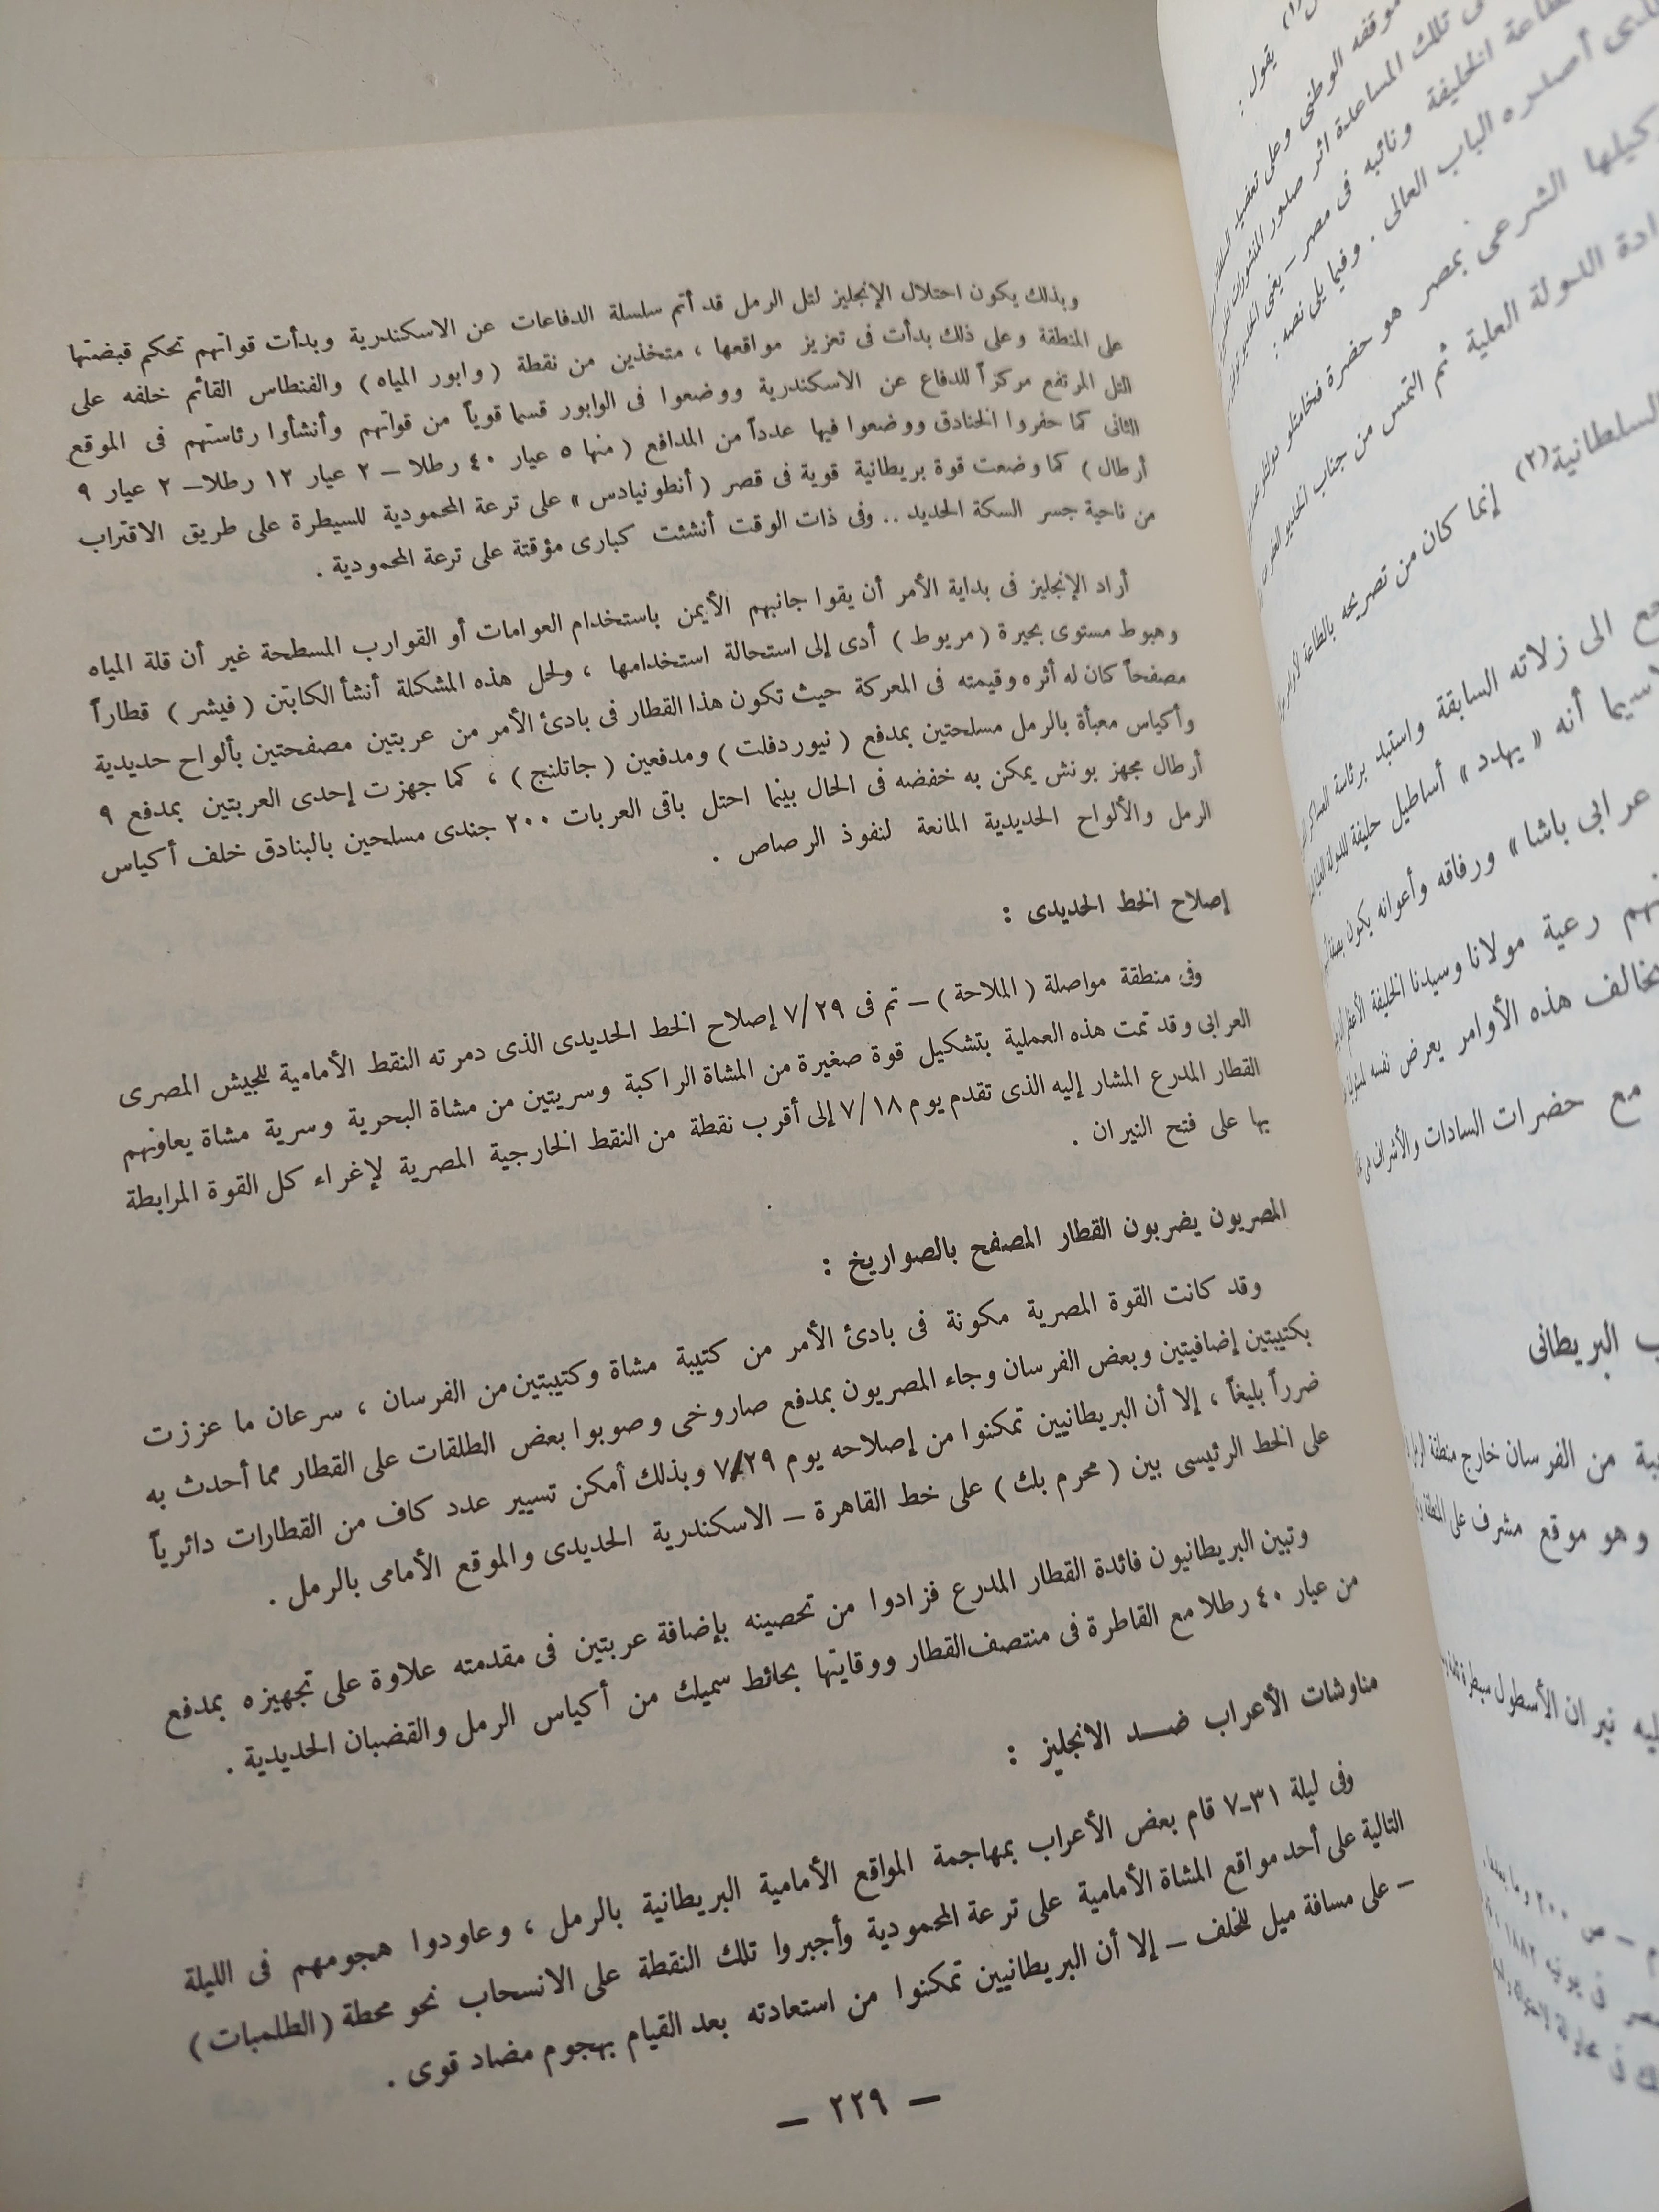 وبذلك يكون احتلال الإنجليز لتل الرمل قد أتم سلسلة الدفاعات عن الاسكندرية وبدأت قواتهم تحكم قبضتها
على المنطقة وعلى ذلك بدأت فى تعزيز مواقعها ، متخذين من نقطة ( وابور المياه ) والفنطاس القائم خلفه على
التل المرتفع مركزاً للدفاع عن الاسكندرية ووضعوا فى الوابور قسما قوياً من قواتهم وأنشأوا رئاستهم فى الموقع
الثانى كما حفروا الخنادق ووضعوا فيها عدداً من المدافع ( منها ٥ عيار ٤٠ رطلا – ٢ عيار ١٢ رطلا– ٢ عيار ٩
أرطال ) كما وضعت قوة بريطانية قوية فى قصر ( أنطونيادس » على ترعة المحمودية للسيطرة على طريق الاقتراب
من ناحية جسر السكة الحديد .. وفى ذات الوقت أنشئت كبارى مؤقتة على ترعة المحمودية .
أراد الإنجليز فى بداية الأمر أن يقوا جانبهم الأيمن باستخدام العوامات أو القوارب المسطحة غير أن قلة المياه
وهبوط مستوى بحيرة ( مريوط ) أدى إلى استحالة استخدامها ، ولحل هذه المشكلة أنشأ الكابتن ( فيشر ) قطاراً
مصفحاً كان له أثره وقيمته فى المعركة حيث تكون هذا القطار فى بادئ الأمر من عربتين مصفحتين بألواح حديدية
وأكياس معبأة بالرمل مسلحتين بمدفع ( نيوردفلت ) ومدفعين ( جاتلنج ) ، كما جهزت إحدى العربتين بمدفع ٩
أرطال مجهز بونش يمكن به خفضه فى الحال بينما احتل باقى العربات ٢٠٠ جندى مسلحين بالبنادق خلف أكياس
الرمل والألواح الحديدية المانعة لنفوذ الرصاص .
إصلاح الخط الحديدى :
وفى منطقة مواصلة ( الملاحة ) – تم فى ٧/٢٩ إصلاح الخط الحديدى الذى دمرته النقط الأمامية للجيش المصرى
العرابى وقد تمت هذه العملية بتشكيل قوة صغيرة من المشاة الراكبة وسريتين من مشاة البحرية وسرية مشاة يعاونهم
القطار المدرع المشار إليه الذى تقدم يوم ٧/١٨ إلى أقرب نقطة من النقط الخارجية المصرية لإغراء كل القوة المرابطة
بها على فتح النيران .
المصريون يضربون القطار المصفح بالصواريخ :
وقد كانت القوة المصرية مكونة فى بادئ الأمر من كتيبة مشاة وكتيبتين من الفرسان ، سرعان ما عززت
بكتيبتين إضافيتين وبعض الفرسان وجاء المصريون بمدفع صاروخى وصوبوا بعض الطلقات على القطار مما أحدث به
ضرراً بليغاً ، إلا أن البريطانيين تمكنوا من إصلاحه يوم ٧/٢٩ وبذلك أمكن تسيير عدد كاف من القطارات دائرياً
على الخط الرئيسى بين ( محرم بك ) على خط القاهرة – الاسكندرية الحديدى والموقع الأمامى بالرمل .
وتبين البريطانيون فائدة القطار المدرع فزادوا من تحصينه بإضافة عربتين فى مقدمته علاوة على تجهيزه بمدفع
من عيار ٤٠ رطلا مع القاطرة فى منتصف القطار ووقايتها بحائط سميك من أكياس الرمل والقضبان الحديدية .
مناوشات الأعراب ضد الانجليز :
وفى ليلة ٣١–٧ قام بعض الأعراب بمهاجمة المواقع الأمامية البريطانية بالرمل ، وعاودوا هجومهم فى الليلة
التالية على أحد مواقع المشاة الأمامية على ترعة المحمودية وأجبروا تلك النقطة على الانسحاب نحو محطة ( الطلمبات )
– على مسافة ميل للخلف – إلا أن البريطانيين تمكنوا من استعادته بعد القيام بهجوم مضاد قوى .
– ٢٢٩ –
يقول :
موقفه الوطنى وعلى تعضيد
تلك المساعدة اثر صدور المنشورات
الخليفة ونائبه فى مصر – يعنى
أصدره الباب العالى . وفيما يلى نصه :
الشرعى بمصر هو حضرة فخامتلو
الدولة العلية ثم التمس من جناب الخديو
السلطانية(٢) إنما كان من تصريحه بالطاعة
الى زلاته السابقة واستبد برئاسة العساكر
أنه « يهدد » أساطيل حليفة للدولة
عرابى باشا » ورفاقه وأعوانه يكون
رعية مولانا وسيدنا الخليفة الأعظم
هذه الأوامر يعرض نفسه
مع حضرات السادات والأشراف
البريطانى
من الفرسان خارج منطقة
وهو موقع مشرف على المنطقة
نيران الأسطول سيطرة
– ص ٢٠٠ وما بعدها